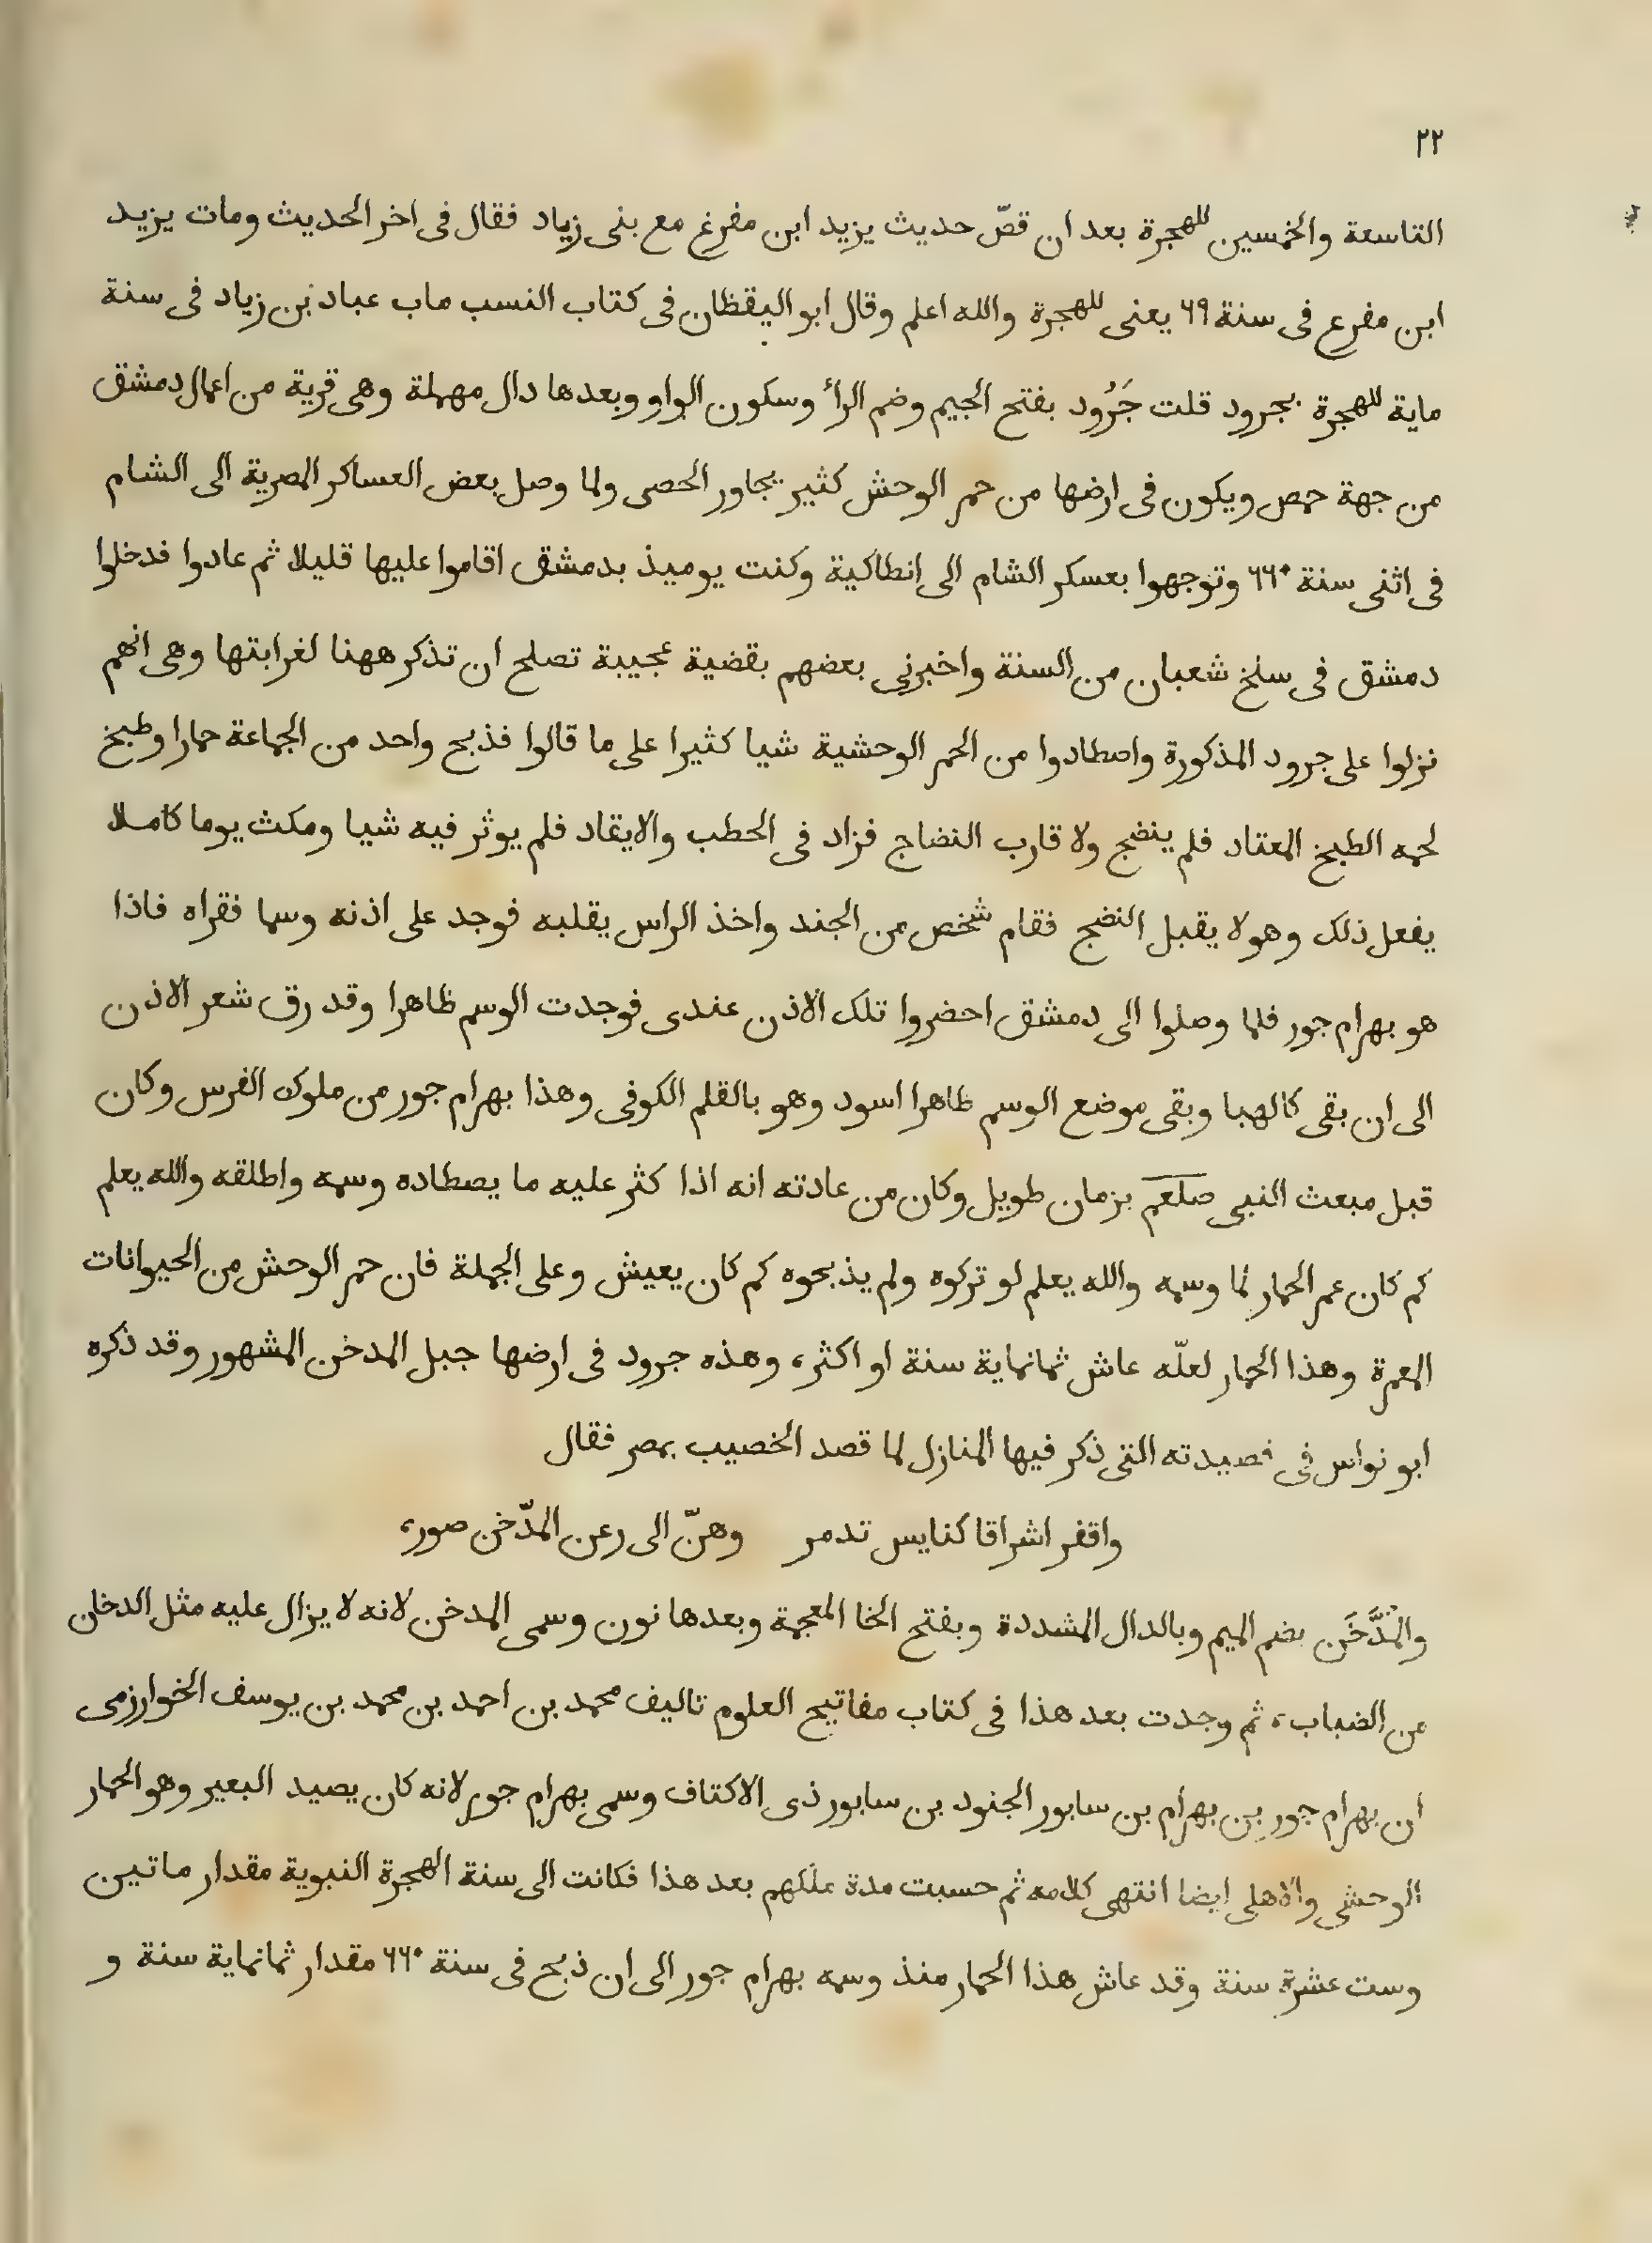 ٢٢
التاسعة والخمسين للهجرة بعد ان قصّ حديث يزيد ابن مفرغ مع بنى زياد فقال فى اخر الحديث ومات يزيد
ابن مفرع فى سنة ٦٩ يعنى للهجرة والله اعلم وقال ابو اليقظان فى كتاب النسب مات عباد بن زياد فى سنة
ماية للهجرة بجرود قلت جَرُود بفتح الجيم وضم الرأ وسكون الواو وبعدها دال مهملة وهى قرية من اعمال دمشق
من جهة حمص ويكون فى ارضها من حمر الوحش كثير يجاور الحصى ولما وصل بعض العساكر المصرية الى الشام
فى اثنى سنة ٦٦٠ وتوجهوا بعسكر الشام الى انطاكية وكنت يوميذ بدمشق اقاموا عليها قليلا ثم عادوا فدخلوا
دمشق فى سلخ شعبان من السنة واخبرنى بعضهم بقضية عجيبة تصلح ان تذكر ههنا لغرابتها وهى انهم
نزلوا على جرود المذكورة واصطادوا من الحمر الوحشية شيا كثيرا على ما قالوا فذبح واحد من الجماعة حمارا وطبخ
لحمه الطبخ المعتاد فلم ينضج ولا قارب النضاج فزاد فى الحطب والايقاد فلم يوثر فيه شيا ومكث يوما كاملا
يفعل ذلك وهو لا يقبل النضج فقام شخص من الجند واخذ الراس يقلبه فوجد على اذنه وسما فقراه فاذا
هو بهرام جور فلما وصلوا الى دمشق احضروا تلك الاذن عندى فوجدت الوسم ظاهرا وقد رق شعر الاذن
الى ان بقى كالهبا وبقى موضع الوسم ظاهرا اسود وهو بالقلم الكوفى وهذا بهرام جور من ملوك الفرس وكان
قبل مبعث النبى صلعم بزمان طويل وكان من عادته انه اذا كثر عليه ما يصطاده وسمه واطلقه والله يعلم
كم كان عمر الحمار لما وسمه والله يعلم لو تركوه ولم يذبحوه كم كان يعيش وعلى الجملة فان حمر الوحش من الحيوانات
المعمرة وهذا الحمار لعلّه عاش ثمانماية سنة او اكثر، وهذه جرود فى ارضها جبل المدخن المشهور وقد ذكره
ابو نواس فى قصيدته التى ذكر فيها المنازل لما قصد الخصيب بمصر فقال
واقفر اشراقا كنايس تدمر وهنّ الى رعن المدّخن صور،
والمُدَّخَن بضم الميم وبالدال المشددة وبفتح الخا المعجمة وبعدها نون وسمى المدخن لانه لا يزال عليه مثل الدخان
من الضباب، ثم وجدت بعد هذا فى كتاب مفاتيح العلوم تاليف محمد بن احمد بن محمد بن يوسف الخوارزمى
ان بهرام جور بن بهرام بن سابور الجنود بن سابور ذى الاكتاف وسمى بهرام جور لانه كان يصيد البعير وهو الحمار
الوحشى والاهلى ايضا انتهى كلامه ثم حسبت مدة ملكهم بعد هذا فكانت الى سنة الهجرة النبوية مقدار ماتين
وست عشرة سنة وقد عاش هذا الحمار منذ وسمه بهرام جور الى ان ذبح فى سنة ٦٦٠ مقدار ثمانماية سنة و